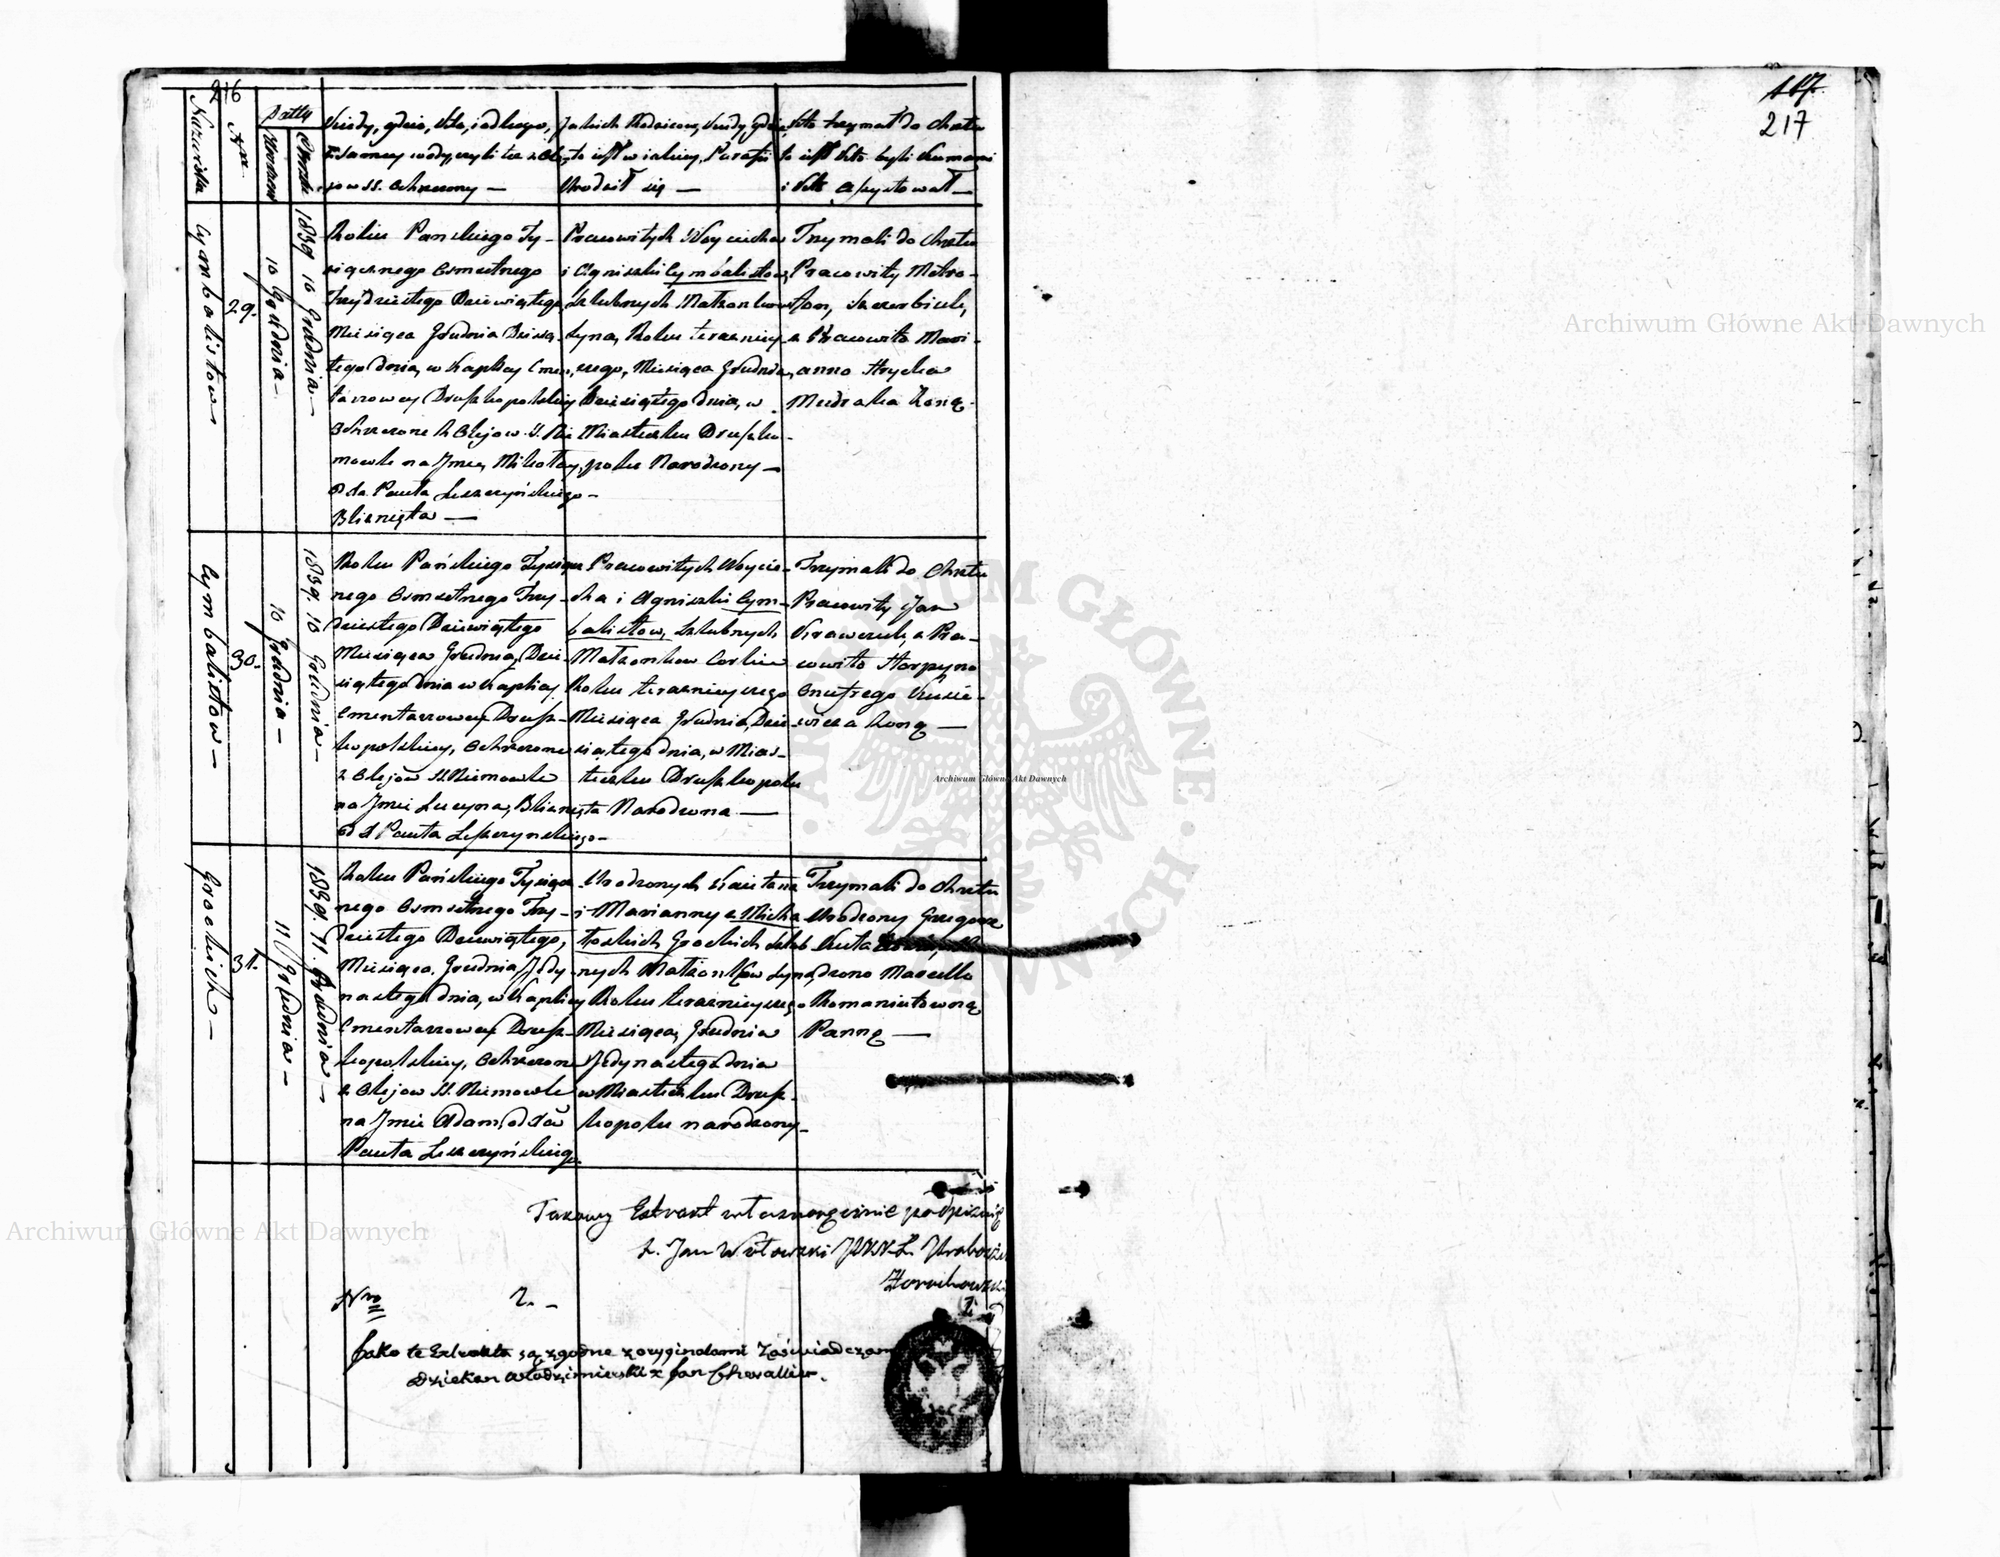 216
Nazwiska
Nro
Datty
Urodzenia
Chrztu
Kiedy, gdzie, kto, i od kogo,
z samey wody, czyli też z Ole-
jow SS. Ochrzczony —
Jakich Rodzicow, kiedy, gdzie,
to iest w iakiey, Parafii
Urodził się —
Kto trzymał do Chrztu
to iest kto byli Kumami
i kto Assystował —
Cymbalistow —
29.
10 Grudnia —
1839 10 Grudnia —
Roku Pańskiego Ty-
siącznego Osmsetnego
Trzydziestego Dziewiątego,
Miesiąca Grudnia Dziesią-
tego dnia, w Kaplicy Cmen-
tarzowey Druszkopolskiey
Ochrzczone z Olejow. S. Nie
mowle na Jmie, Mikołay,
od Xa Pawła Leszczyńskiego —
Bliznięta —
Pracowitych Woyciecha
i Agnieszki Cymbalistow,
Szlubnych Małżonkow
Syna, Roku teraznieyszego, Miesiąca Grudnia,
Dziesiątego dnia, w
Miasteczku Druszko-
polu Narodzony —
Trzymali do Chrztu
Pracowity Mitro-
fan, Szczerbiuk,
z Pracowitą Mari-
anną Hryćka
Mudraka Żoną.
Cymbalistow —
30.
10 Grudnia —
1839. 10 Grudnia —
Roku Pańskiego Tysiącz-
nego Osmsetnego Trzy-
dziestego Dziewiątego
Miesiąca Grudnia, Dzie-
siątego dnia w Kaplicy
Cmentarzowey Drusz-
kopolskiey, Ochrzczone
z Olejow SS. Niemowle
na Jmie Lucyna, Bliznięta
od X Pawła Leszczynskiego —
Pracowitych Woycie-
cha i Agnieszki Cym-
balistow, Szlubnych
Małżonkow Corka
Roku teraznieyszego
Miesiąca Grudnia, Dzie-
siątego dnia, w Mias-
teczku Druszkopolu
Narodzona —
Trzymali do Chrztu
Pracowity Jan
Krawczuk, z Pra-
cowitą Horpyną
Onufrego
Żoną —
Grockich —
31.
11 Grudnia —
1839. 11. Grudnia —
Roku Pańskiego Tysiącz-
nego Osmsetnego Trzy-
dziestego Dziewiątego,
Miesiąca Grudnia Jedy-
nastego dnia, w Kaplicy
Cmentarzowey Drusz-
kopolskiey, Ochrzczone
z Olejow SS. Niemowle
na Jmie Adam, od Xa
Pawła Leszczyńskiego.
Urodzonych Kaietana
i Marianny z Micha-
łoskich Grockich Szlub-
nych Małżonków Syn,
Roku teraznieyszego
Miesiąca, Grudnia
Jedynastego dnia
w Miasteczku Drusz-
kopolu narodzony —
Trzymali do Chrztu
Urodzony Grzegorz
Marcellą
Romaniutowną
Panną —
Takowy Extrakt własnoręcznie podpisuię
X. Jan Wołowski
Nro 2. —
Jako te Extrakta są zgodne z oryginałami Zaświadczam
Dziekan Włodzimierski X Jan Chevallier.
217
Archiwum Główne Akt Dawnych
Archiwum Główne Akt Dawnych
Archiwum Główne Akt Dawnych
ARCHIWUM GŁÓWNE AKT DAWNYCH